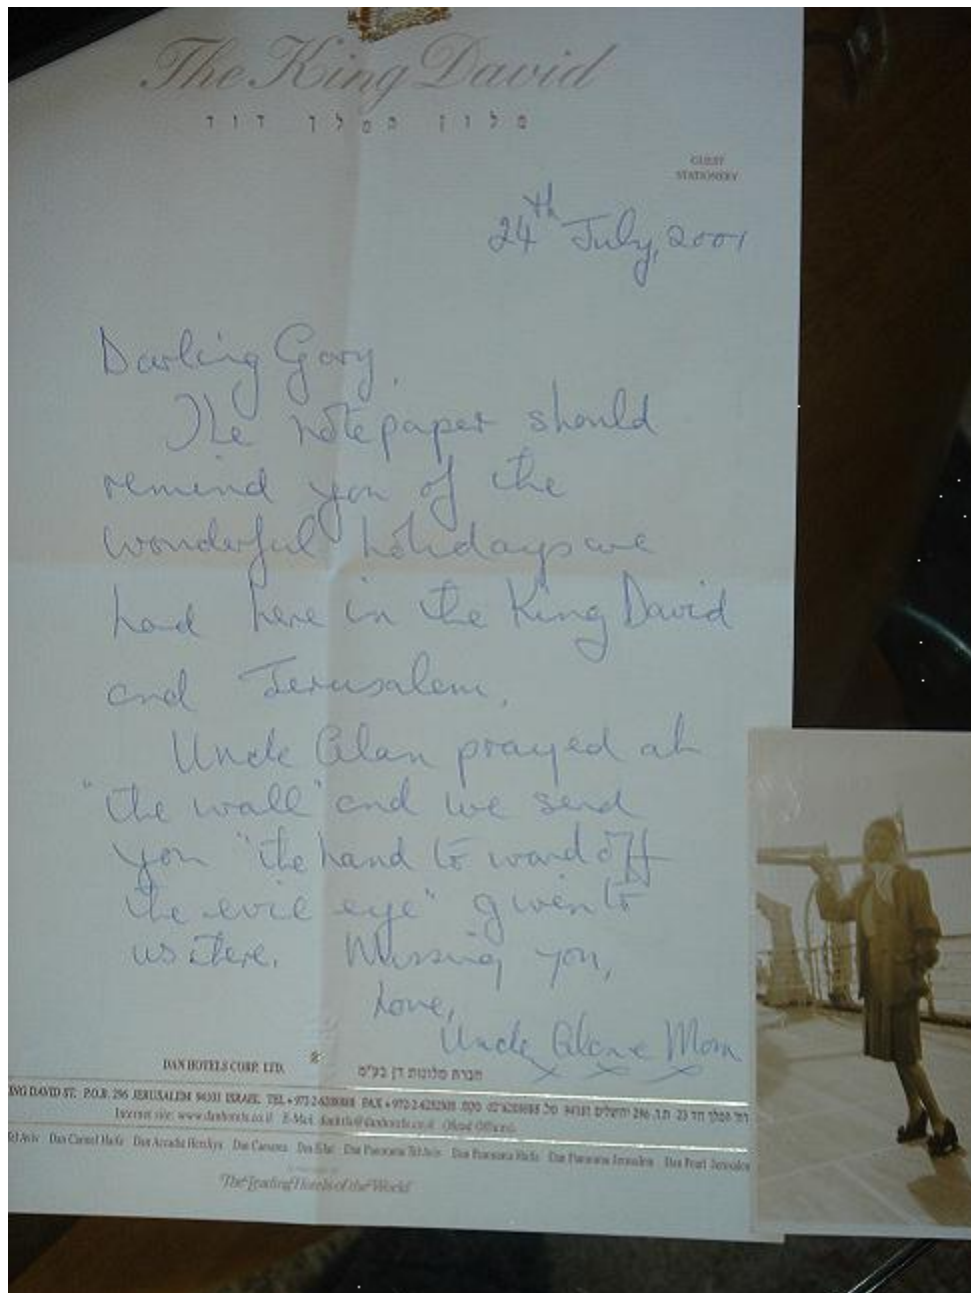 The King David
מלון המלך דוד
GUEST
STATIONERY
24th July, 2001
Darling Gary,
The notepaper should
remind you of the
wonderful holidays we
had here in the King David
and Jerusalem.
Uncle Alan prayed at
"the wall" and we send
you "the hand to ward off
the evil eye" given to
us there. Missing you,
Love,
Uncle Alan & Mom
DAN HOTELS CORP. LTD.
חברת מלונות דן בע"מ
KING DAVID ST. P.O.B. 296 JERUSALEM 94101 ISRAEL TEL
Internet site: www.danhotels.co.il E-Mail:
Tel Aviv Dan Carmel Haifa Dan Accadia Herzliya Dan Caesarea Dan Eilat Dan Panorama Tel Aviv Dan Panorama Haifa Dan Panorama Jerusalem Dan Pearl Jerusalem
The Leading Hotels of the World